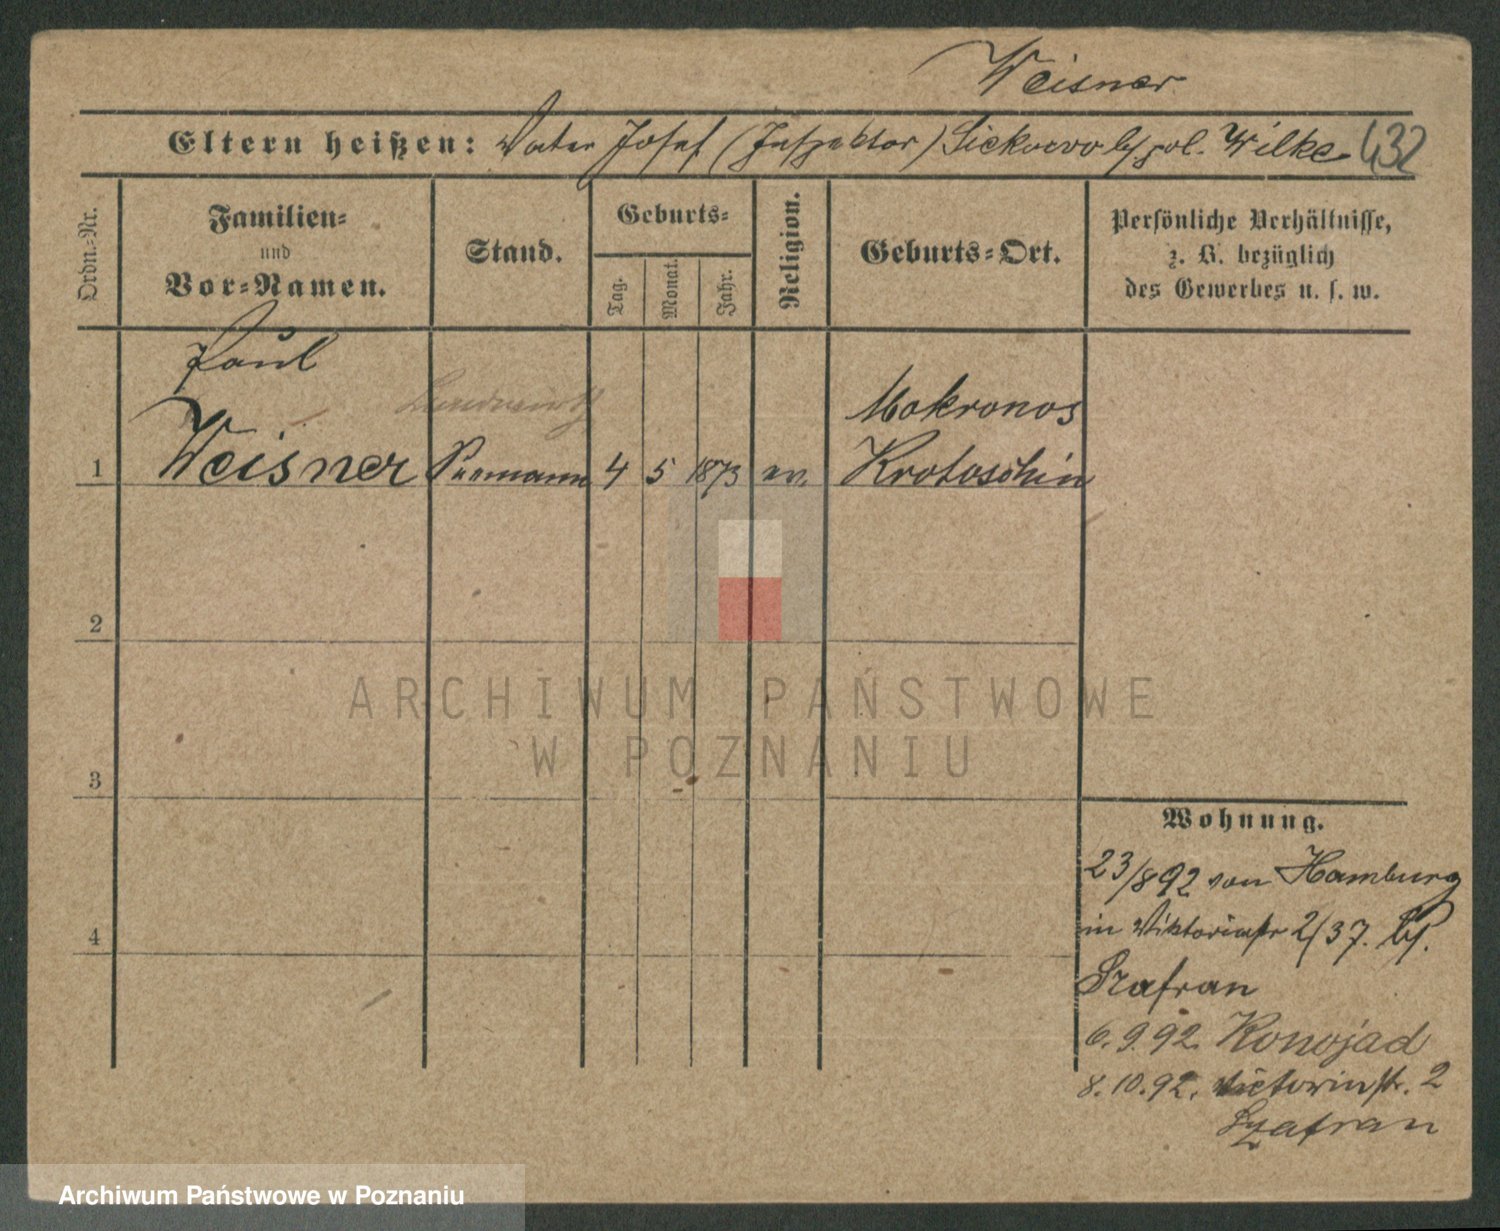 Weisner
Eltern heißen: Vater Josef (Inspektor) Siekowo b/ pol. Wilke 432
Ordn.-Nr.
Familien-
und
Vor-Namen.
Stand.
Geburts-
Tag.
Monat.
Jahr.
Religion.
Geburts-Ort.
Persönliche Verhältnisse,
z. B. bezüglich
des Gewerbes u. s. w.
Paul
Landwirth
Mokronos
1 Weisner Seemann 4 5 1873 ev. Krotoschin
2
3
4
Wohnung.
23/8 92 von Hamburg
in Viktoriastr 2/37. b/.
Szafran
6. 9. 92. Konojad
8. 10. 92. Victoriastr. 2
Szafran
ARCHIWUM PAŃSTWOWE
W POZNANIU
Archiwum Państwowe w Poznaniu